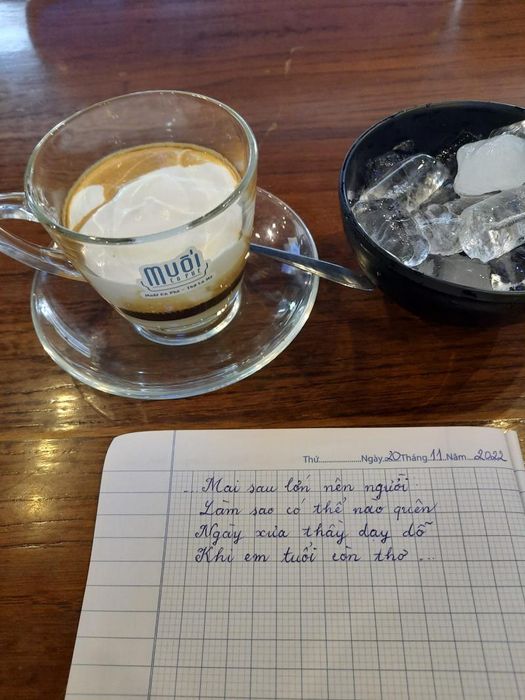 MUỐI
CÀ PHÊ
Thứ..............Ngày 20 Tháng 11 Năm 2022
... Mai sau lớn nên người
Làm sao có thể nào quên
Ngày xưa thầy dạy dỗ
Khi em tuổi còn thơ ...